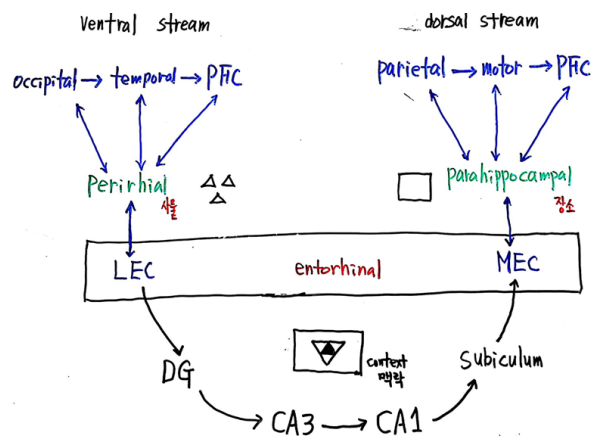 ventral stream
dorsal stream
occipital → temporal → PFC
parietal → motor → PFC
perirhial
사물
parahippocampal
장소
LEC
entorhinal
MEC
DG
context
맥락
subiculum
CA3 → CA1